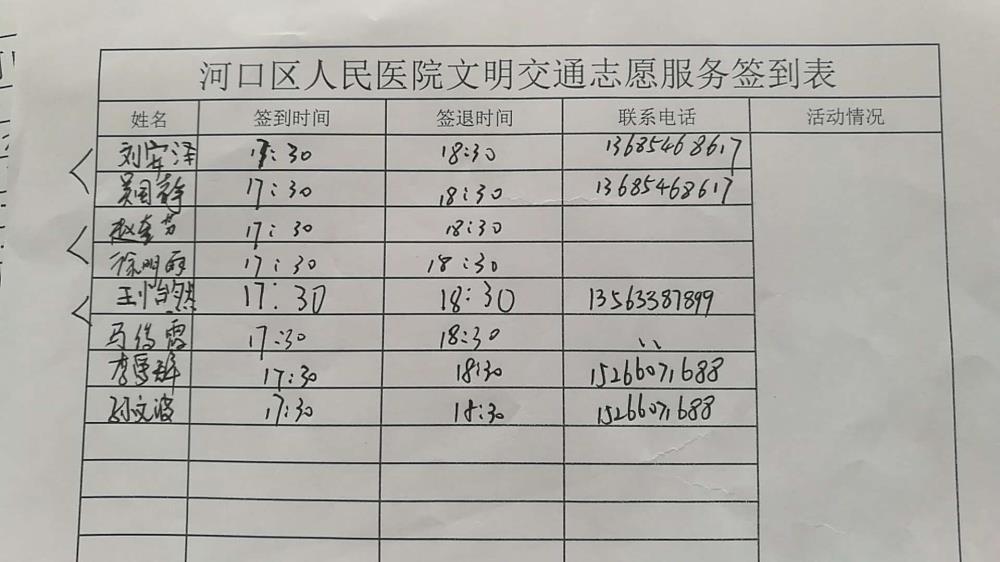 河口区人民医院文明交通志愿服务签到表
姓名 签到时间 签退时间 联系电话 活动情况
刘安泽 17:30 18:30 13685468617
吴国静 17:30 18:30 13685468617
赵奎芳 17:30 18:30
徐明雨 17:30 18:30
王怡然 17:30 18:30 13563387899
马俊霞 17:30 18:30 、、
李 17:30 18:30 15266071688
孙文波 17:30 18:30 15266071688